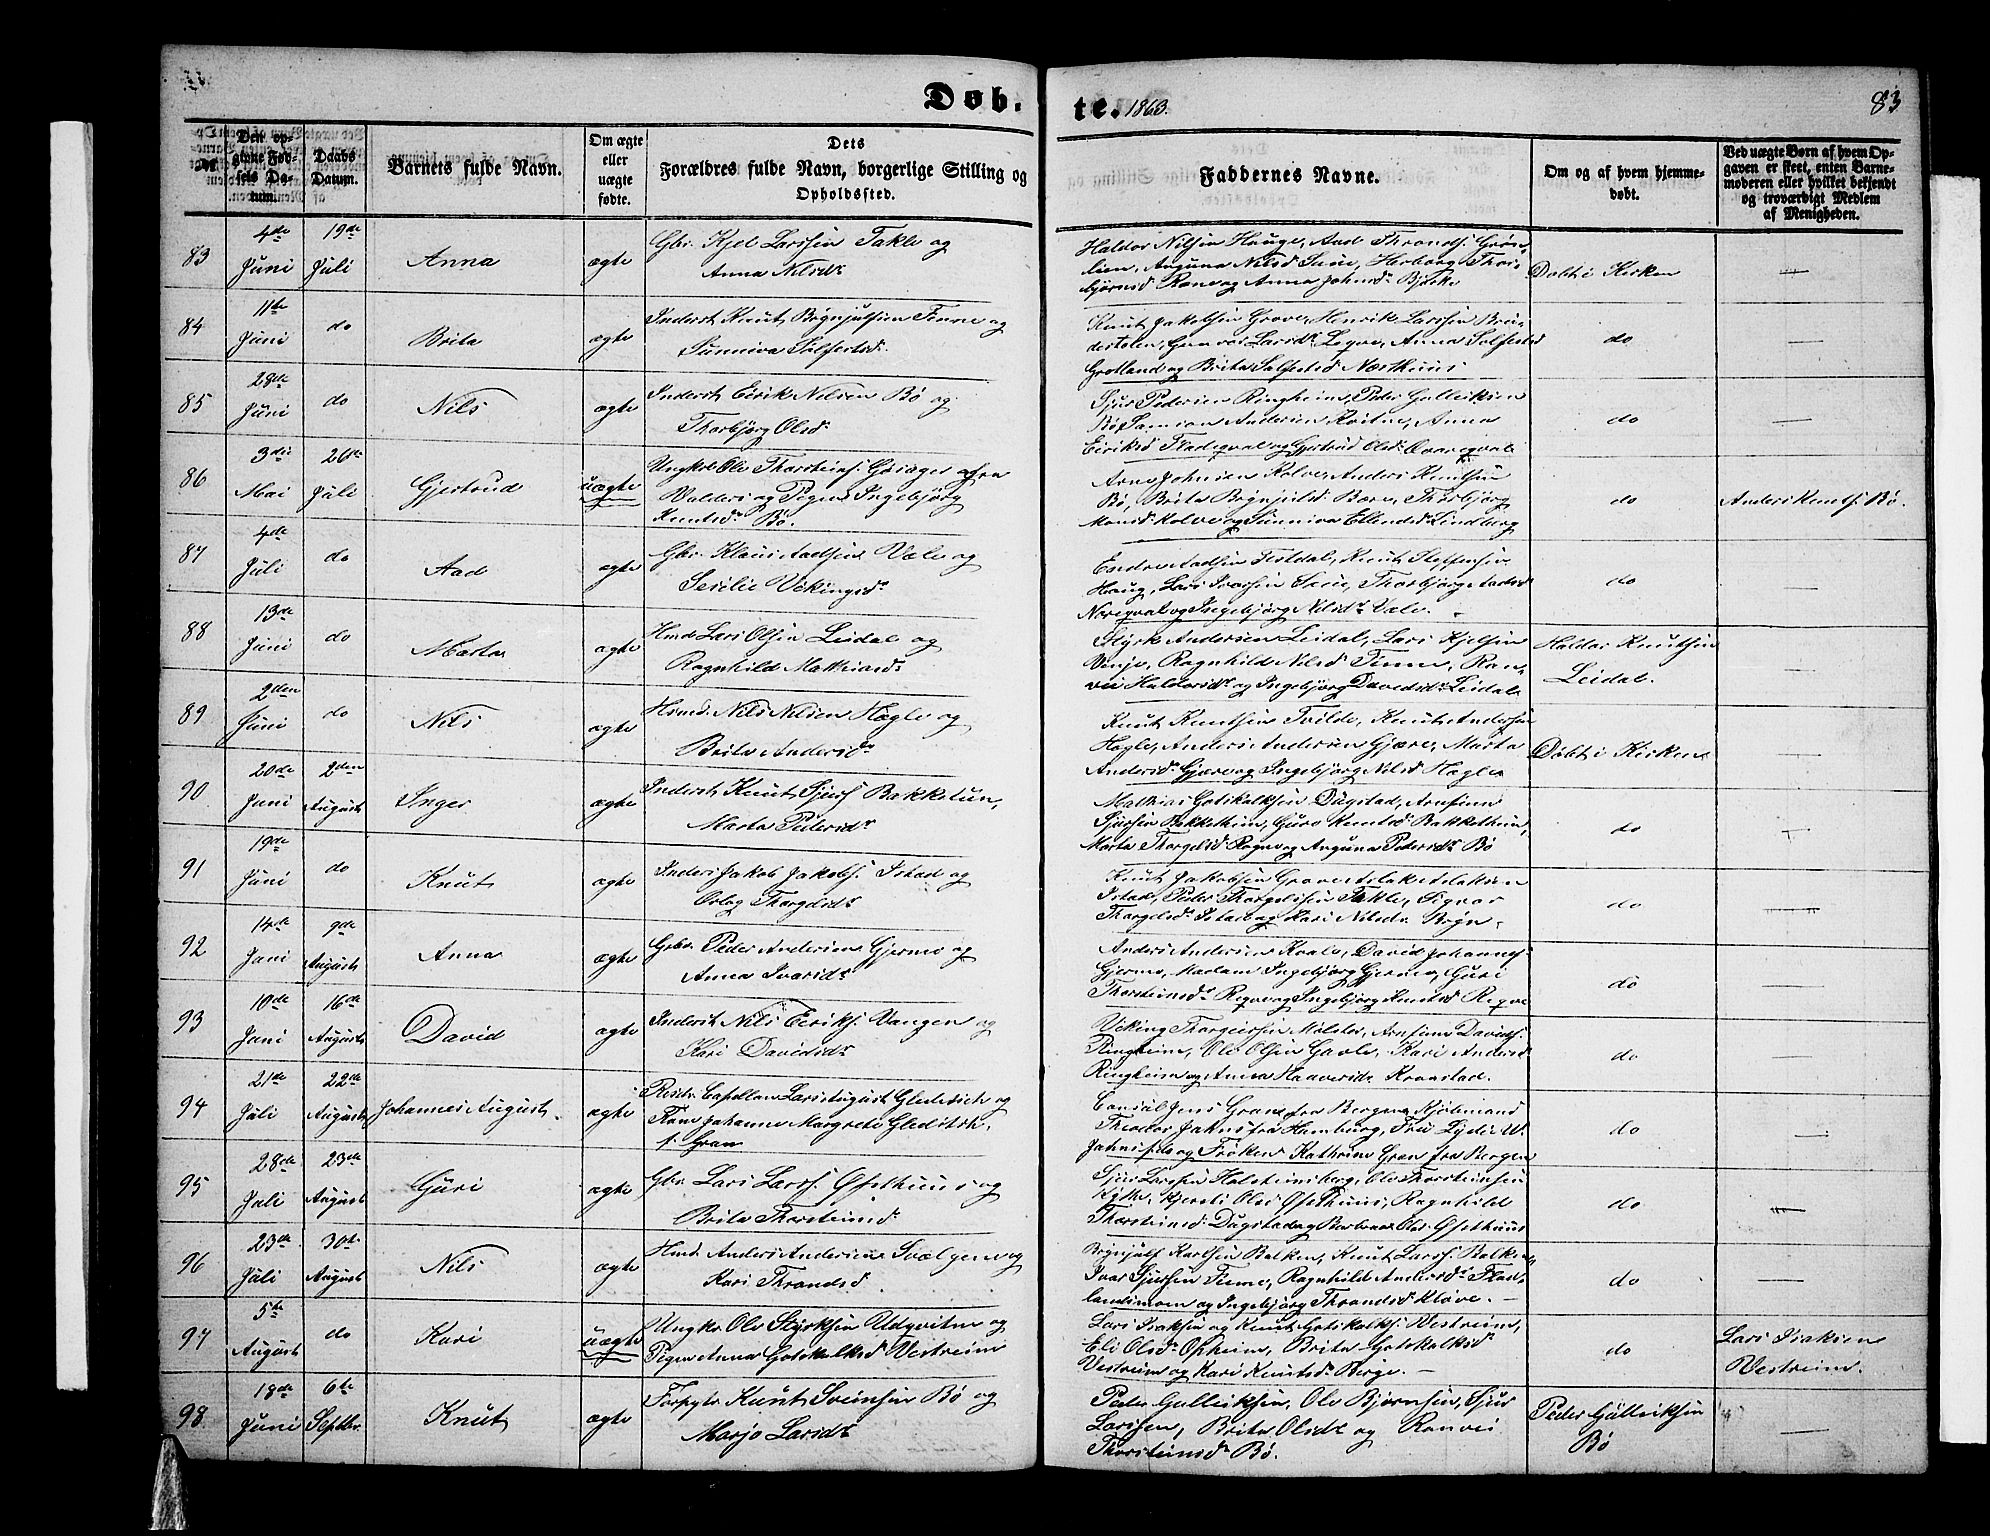 Døb-
te. 1863.
83
№
Den op-
givne Fød-
sels Da-
tum.
Daabs
Datum.
Barnets fulde Navn.
Om ægte
eller
uægte
fødte.
Dets
Forældres fulde Navn, borgerlige Stilling og
Opholdssted.
Faddernes Navne.
Om og af hvem hjemme-
døbt.
Ved uægte Børn af hvem Op-
gaven er skeet, enten Barne-
moderen eller hvilket bekjendt
og troværdigt Medlem
af Menigheden.
83
4de
Juni
19de
Juli
Anna
ægte
Gbr. Kjel Larssen Takle og
Anna Nilsdr
Haldor Nilsen Hauge, Aad Throndss. Grøn-
lien, Anguna Nilsd Saue, Herborg Thor-
bjørnsd Rene og Anna Johnsdr Bjørke
Døbt i Kirken
84
11te
Juni
do
Brita
ægte
Inderst Knut Brynjulfsen Finne og
Sunniva Solfestsd.
Knut Jakobsen Grove, Henrik Larssen
Gunvor Larsdr Leqve, Anna Solfestsd
Grotland og Brita Solfestsd Norhuus
do
85
28de
Juni
do
Nils
ægte
Inderst Eirik Nilsen Bø og
Thorbjørg Olsd.
Sjur Pedersen Ringheim, Peder Gulleiksen
Bø, Samson Andersen Kvitne, Anna
Eiriksd Fladeqval og Gjertrud Olsdr
do
86
3die
Mai
26de
Juli
Gjertrud
uægte
Ungkarl Ole Thorsteins. fra
Valders og Pigen Ingebjørg
Knutsdr Bø.
Arne Johnsen Kolve, Anders Knutsen
Bø, Brita Brynjulsd Bøen, Thorbjørg
Monsd Kolve og Sunniva Ellendsd Lindberg
do
Anders Knuts. Bø.
87
4de
Juli
do
Aad
ægte
Gbr. Klaus Aadsen Væle og
Sesilie Vikingsd.
Endre Aadsen Istdal, Knut Steffensen
Haug, Lars Ivarsen Saue, Thorbjørg Aadsd
Noreqval og Ingebjørg Nilsdr Væle.
do
88
13de
Juni
do
Marta
ægte
Hmd Lars Olsen Leidal og
Ragnhild Mathiasdr
Styrk Andersen Leidal, Lars Kjelsen
Vinje, Ragnhild Nilsd Finne, Ran-
vei Haldorsdr og Ingebjørg Davidsdr Leidal
Haldor Knutsen
Leidal.
89
2den
Juni
do
Nils
ægte
Hsmd. Nils Nilsen Hægle og
Brita Andersdr
Knut Knutsen Tvilde, Knut Andersen
Hægle, Anders Andersen Gjære, Marta
Andersdr Gjære og Ingebjørg Nilsd Hægle
Døbt i Kirken
90
20de
Juni
2den
August
Inger
ægte
Inderst Knut Sjurs. Bakketun,
Marta Pedersdr
Mathias Gotskalksen Dugstad, Arnfinn
Sjursen Bakkethun, Guro Knutsd Bakkethun,
Marta Thorgelsd Rogne og Anguna Pedersdr Bø
do
91
19de
Juni
do
Knut
ægte
Inderst Jakob Jakobs. Istad og
Oslag Thorgelsdr
Knut Jakobsen Grove, Aslak Aslaksen
Istad, Peder Thorgelsen Takle, Sigvor
Thorgelsdr Istad og Kari Nilsdr Bryn.
do
92
14de
Juni
9de
August
Anna
ægte
Gbr. Peder Andersen Gjerme og
Anna Ivarsdr
Anders Andersen Kvale, David Johannes.
Gjerme, Madam Ingebjørg Gjerme, Guri
Thorsteinsdr Reqve og Ingebjørg Knutsd Reqve
do
93
10de
Juni
16de
August
David
ægte
Inderst Nils Eiriks. Vangen og
Kari Davidsdr
Viking Thorgeirsen Mølster, Arnfinn Davids.
Ringheim, Ole Olsen Gavle, Kari Andersd
Ringheim og Anna Haaversdr Kronstad.
do
94
21de
Juli
22de
August
Johannes August.
ægte
Resid. Capellan Lars August Gleditsch og
Frue Johanne Margrete Gleditsch,
f. Gran
Consul Jens Gran fra Bergen, Kjøbmand
Theodor Jahns fra Hamburg, Frue Lydie W.
Jahns fds og Frøken Kathrine Gran fra Bergen
do
95
28de
Juli
23de
August
Guri
ægte
Gbr. Lars Larss. Gjethuus og
Brita Thorsteinsd.
Sjur Larssen Holsteinsberg, Ole Thorsteinsen
Kyte, Kjersti Olsd Gjethuus, Ragnhild
Thorsteinsdr Dugstad og Barbraa Olsdr Gjethuus
do
96
23de
Juli
30te
August
Nils
ægte
Hmd. Anders Andersen Svelgen og
Kari Throndsd
Brynjulf Karlsen Balken, Knut Larss. Balken
Ivar Sjursen Finne, Ragnhild Andersdr Flad-
landsmoen og Ingebjørg Throndsd Kløve.
do
97
5te
August
do
Kari
uægte
Ungkr. Ole Styrksen Udqvitne og
Pigen Anna Gotskalksd Vestreim
Lars Isaksen og Knut Gotskalks. Vestreim,
Eli Olsdr Opheim, Brita Gotskalksd
Vestreim og Kari Knutsdr Berge.
do
Lars Isaksen
Vestreim.
98
18de
Juni
6te
Septbr.
Knut
ægte
Forpgtr Knut Sveinsen Bø og
Marjo Larsdr
Peder Gulleiksen, Ole Bjørnsen, Sjur
Larssen, Brita Olsdr og Ranvei
Thorsteinsdr Bø.
Peder Gulleiksen
Bø